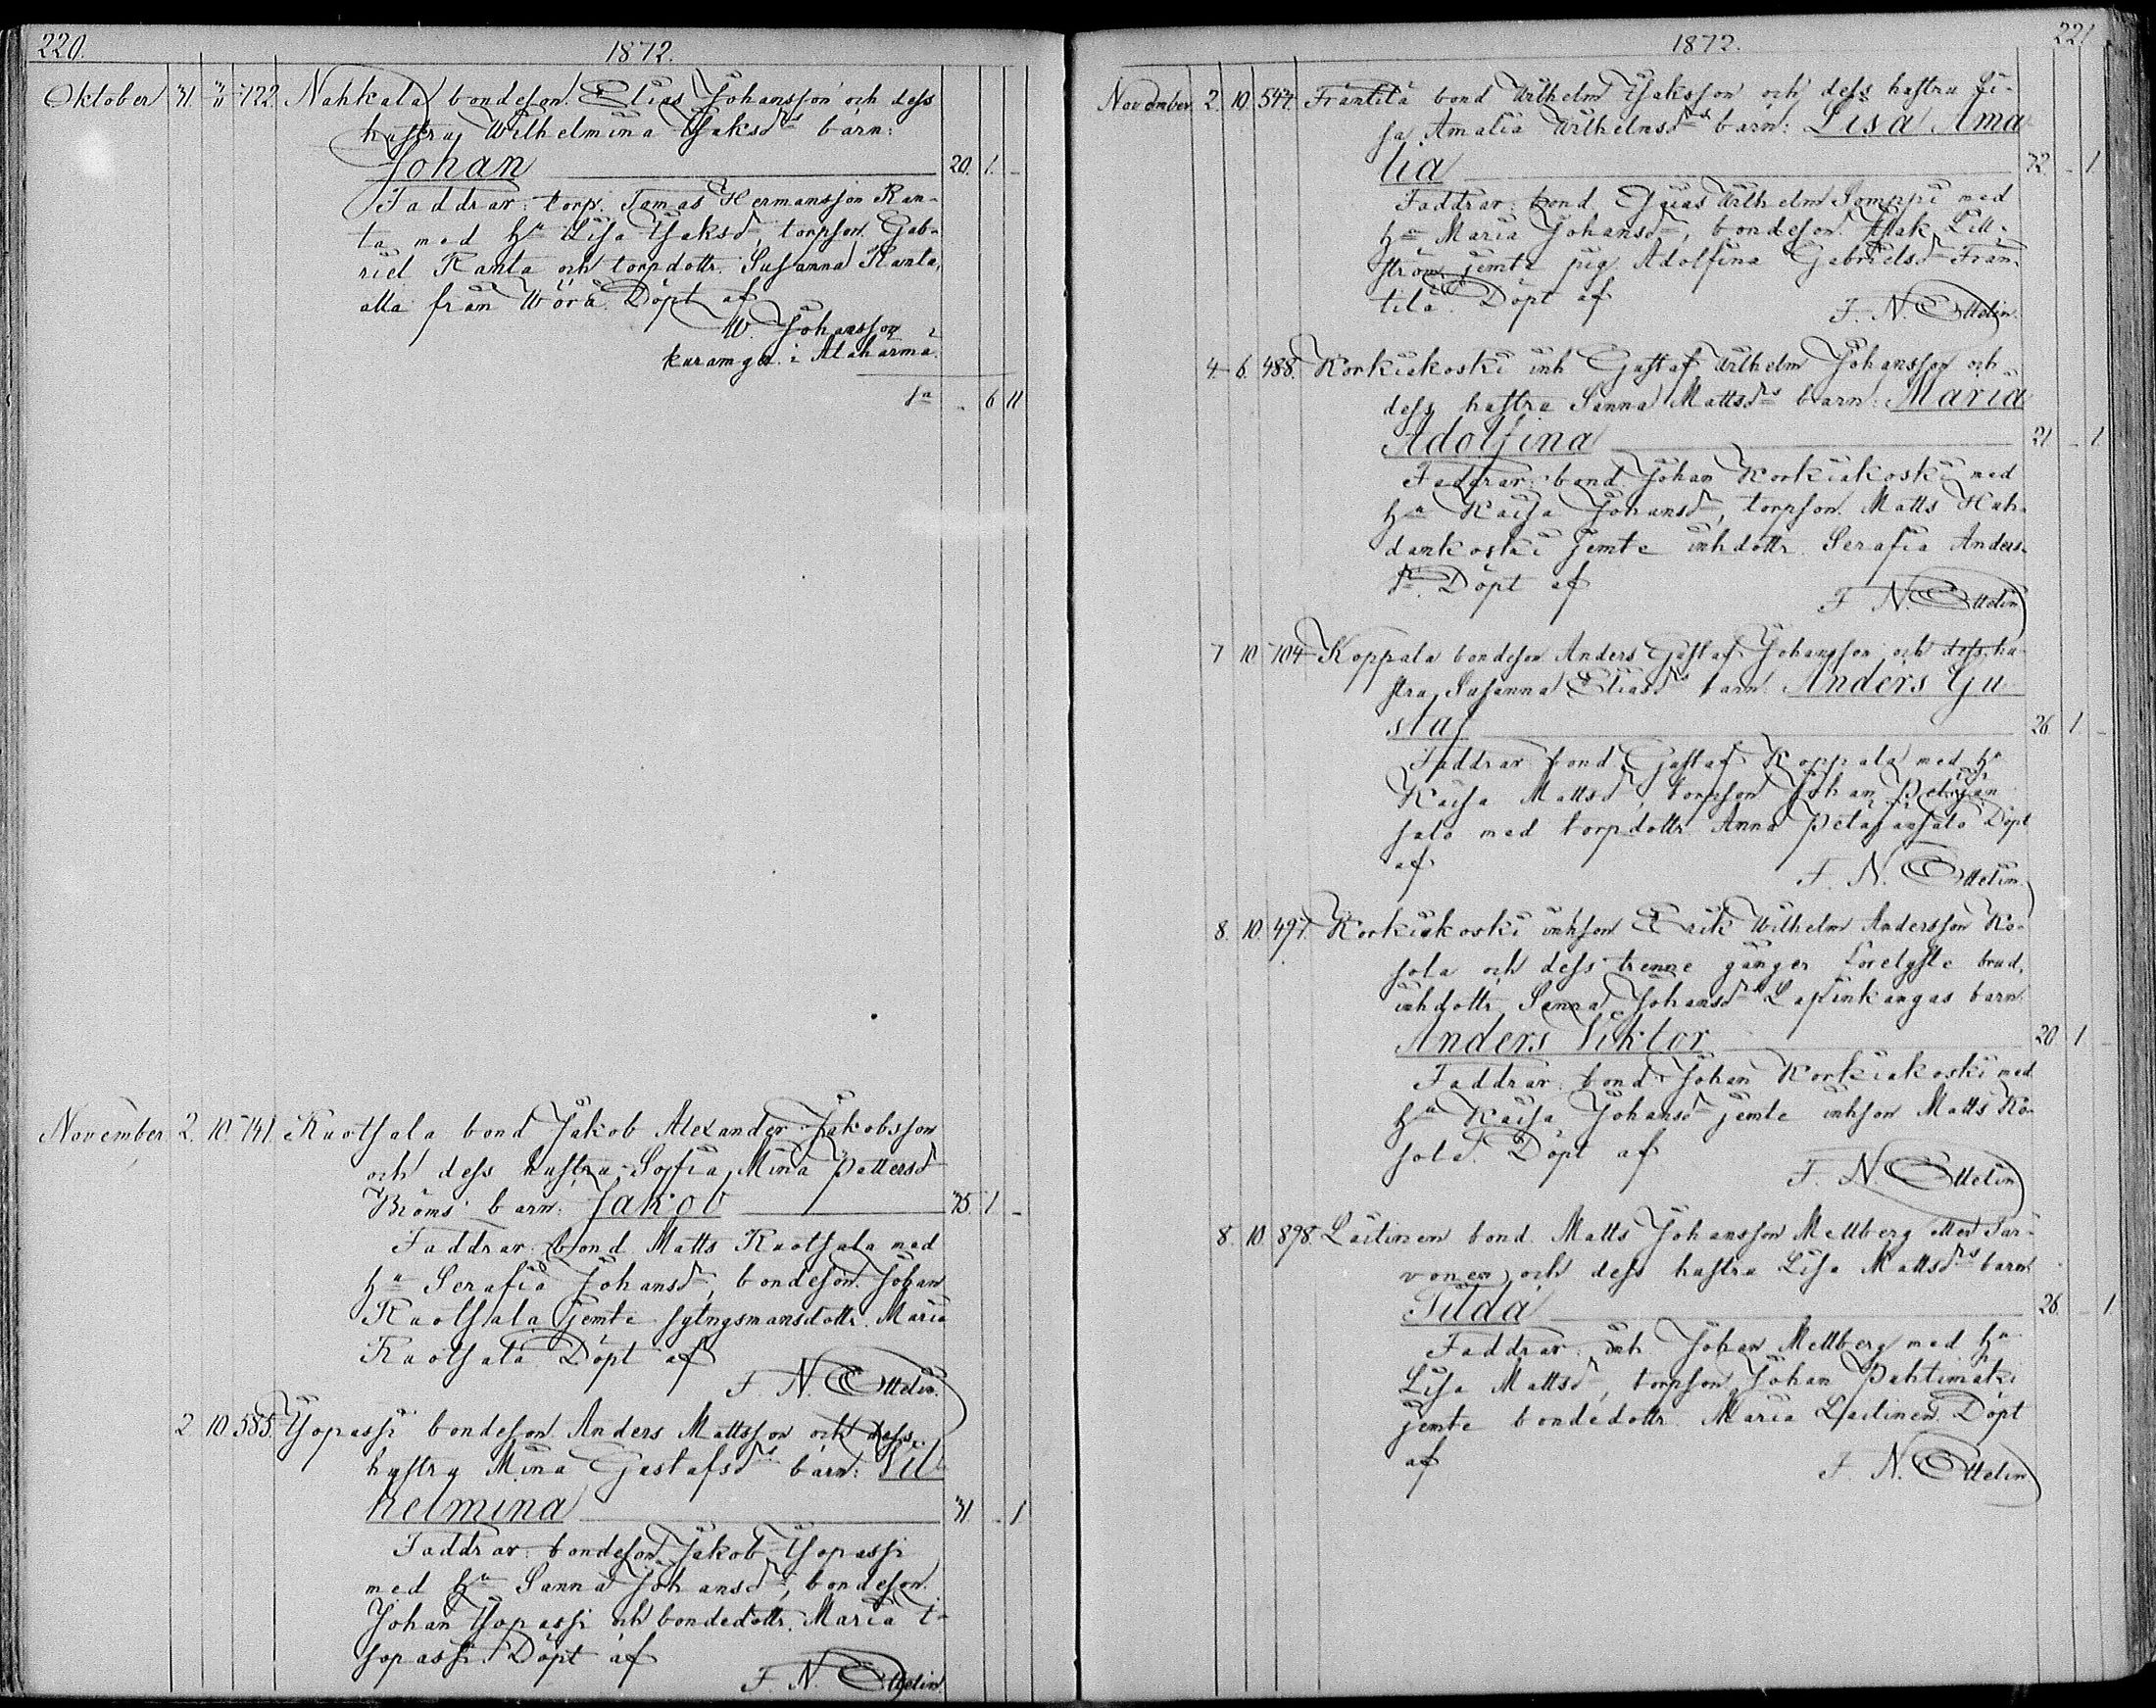 220.
1872.
Oktober 31. 3/11 722. Nahkala bondeson. Elias Johansson och dess
hustru Wilhelmina Isaksdrs barn:
Johan 20. 1. -
Faddrar: torp. Tomas Hermansson Ran-
ta med ha Lisa Isaksdr, torpson. Gab-
riel Ranta och torpdottr. Susanna Ranta,
alla från Wörå. Döpt af
W. Johansson
kaxamgn. i Alahärmä.
Sa - 6 11
November 2. 10. 741. Ruotsala bond Jakob Alexander Jakobsson
och dess hustru Sofia Mina Pettersdr
Bröms barn: Jakob 35. 1 -
Faddrar: bond. Matts Ruotsala med
ha Serafia Johansdr, bondeson. Johan
Ruotsala jemte sytngsmansdottr. Maria
Ruotsala. Döpt af
F. N. Ottelin.
2 10. 585. Isopassi bondeson. Anders Mattsson och dess
hustru Mina Gustafsdrs barn: Vil-
helmina 31. - 1
Faddrar: bondeson Jakob Isopassi
med ha Sanna Johansdr, bondeson.
Johan Isopassi och bondedottr. Maria I-
sopassi. Döpt af
F. N. Ottelin.
1872.
221
November 2. 10. 544. Fräntilä bond Wilhelm Isaksson och dess hustru Li-
sa Amalia Wilhelmsdrs barn: Lisa Ama
lia 32. - 1
Faddrar: bond. Esaias Wilhelm Somppi med
ha Maria Johansdr, bondeson. Isak Lill-
ström jemte pig. Adolfina Gabrielsdr Frän-
tilä. Döpt af
F. N. Ottelin.
4. 6. 488. Korkiakoski inh Gustaf Wilhelm Johansson och
dess hustru Sanna Mattsdrs barn: Maria
Adolfina 21. - 1.
Faddrar: bond. Johan Korkiakoski med
ha Kaisa Johansdr, torpson. Matts Huh-
dankoski jemte inhdottr. Serafia Anders-
dr. Döpt af
F. N. Ottelin
7 10 104 Koppala bondeson Anders Gustaf Johansson och dess hu-
stru Susanna Eliasdrs barn: Anders Gu
staf 26. 1 -
Faddrar bond Gustaf Koppala med ha
Kaisa Mattsdr, torpson Johan Petäjän
salo med torpdottr Anna Petäjänsalo Döpt
af
F. N. Ottelin.
8. 10. 497. Korkiakoski inhson Erik Wilhelm Andersson Ko-
sola och dess trenne gånger förelyste brud,
inhdottr. Sanna Johansdrs Lapinkangas barn
Anders Viktor 20 1 -
Faddrar: bond. Johan Korkiakoski med
ha Kaisa Johansdr jemte inhson Matts Ko-
sola. Döpt af
F. N. Ottelin
8. 10. 898. Laitinen bond. Matts Johansson Mellberg eller Tar-
vonen och dess hustru Lisa Mattsdrs barn
Tilda 26. - 1.
Faddrar: inh Johan Mellberg med ha
Lisa Mattsdr, torpson Johan Pahtimäki
jemte bondedottr. Maria Laitinen. Döpt
af
F. N. Ottelin